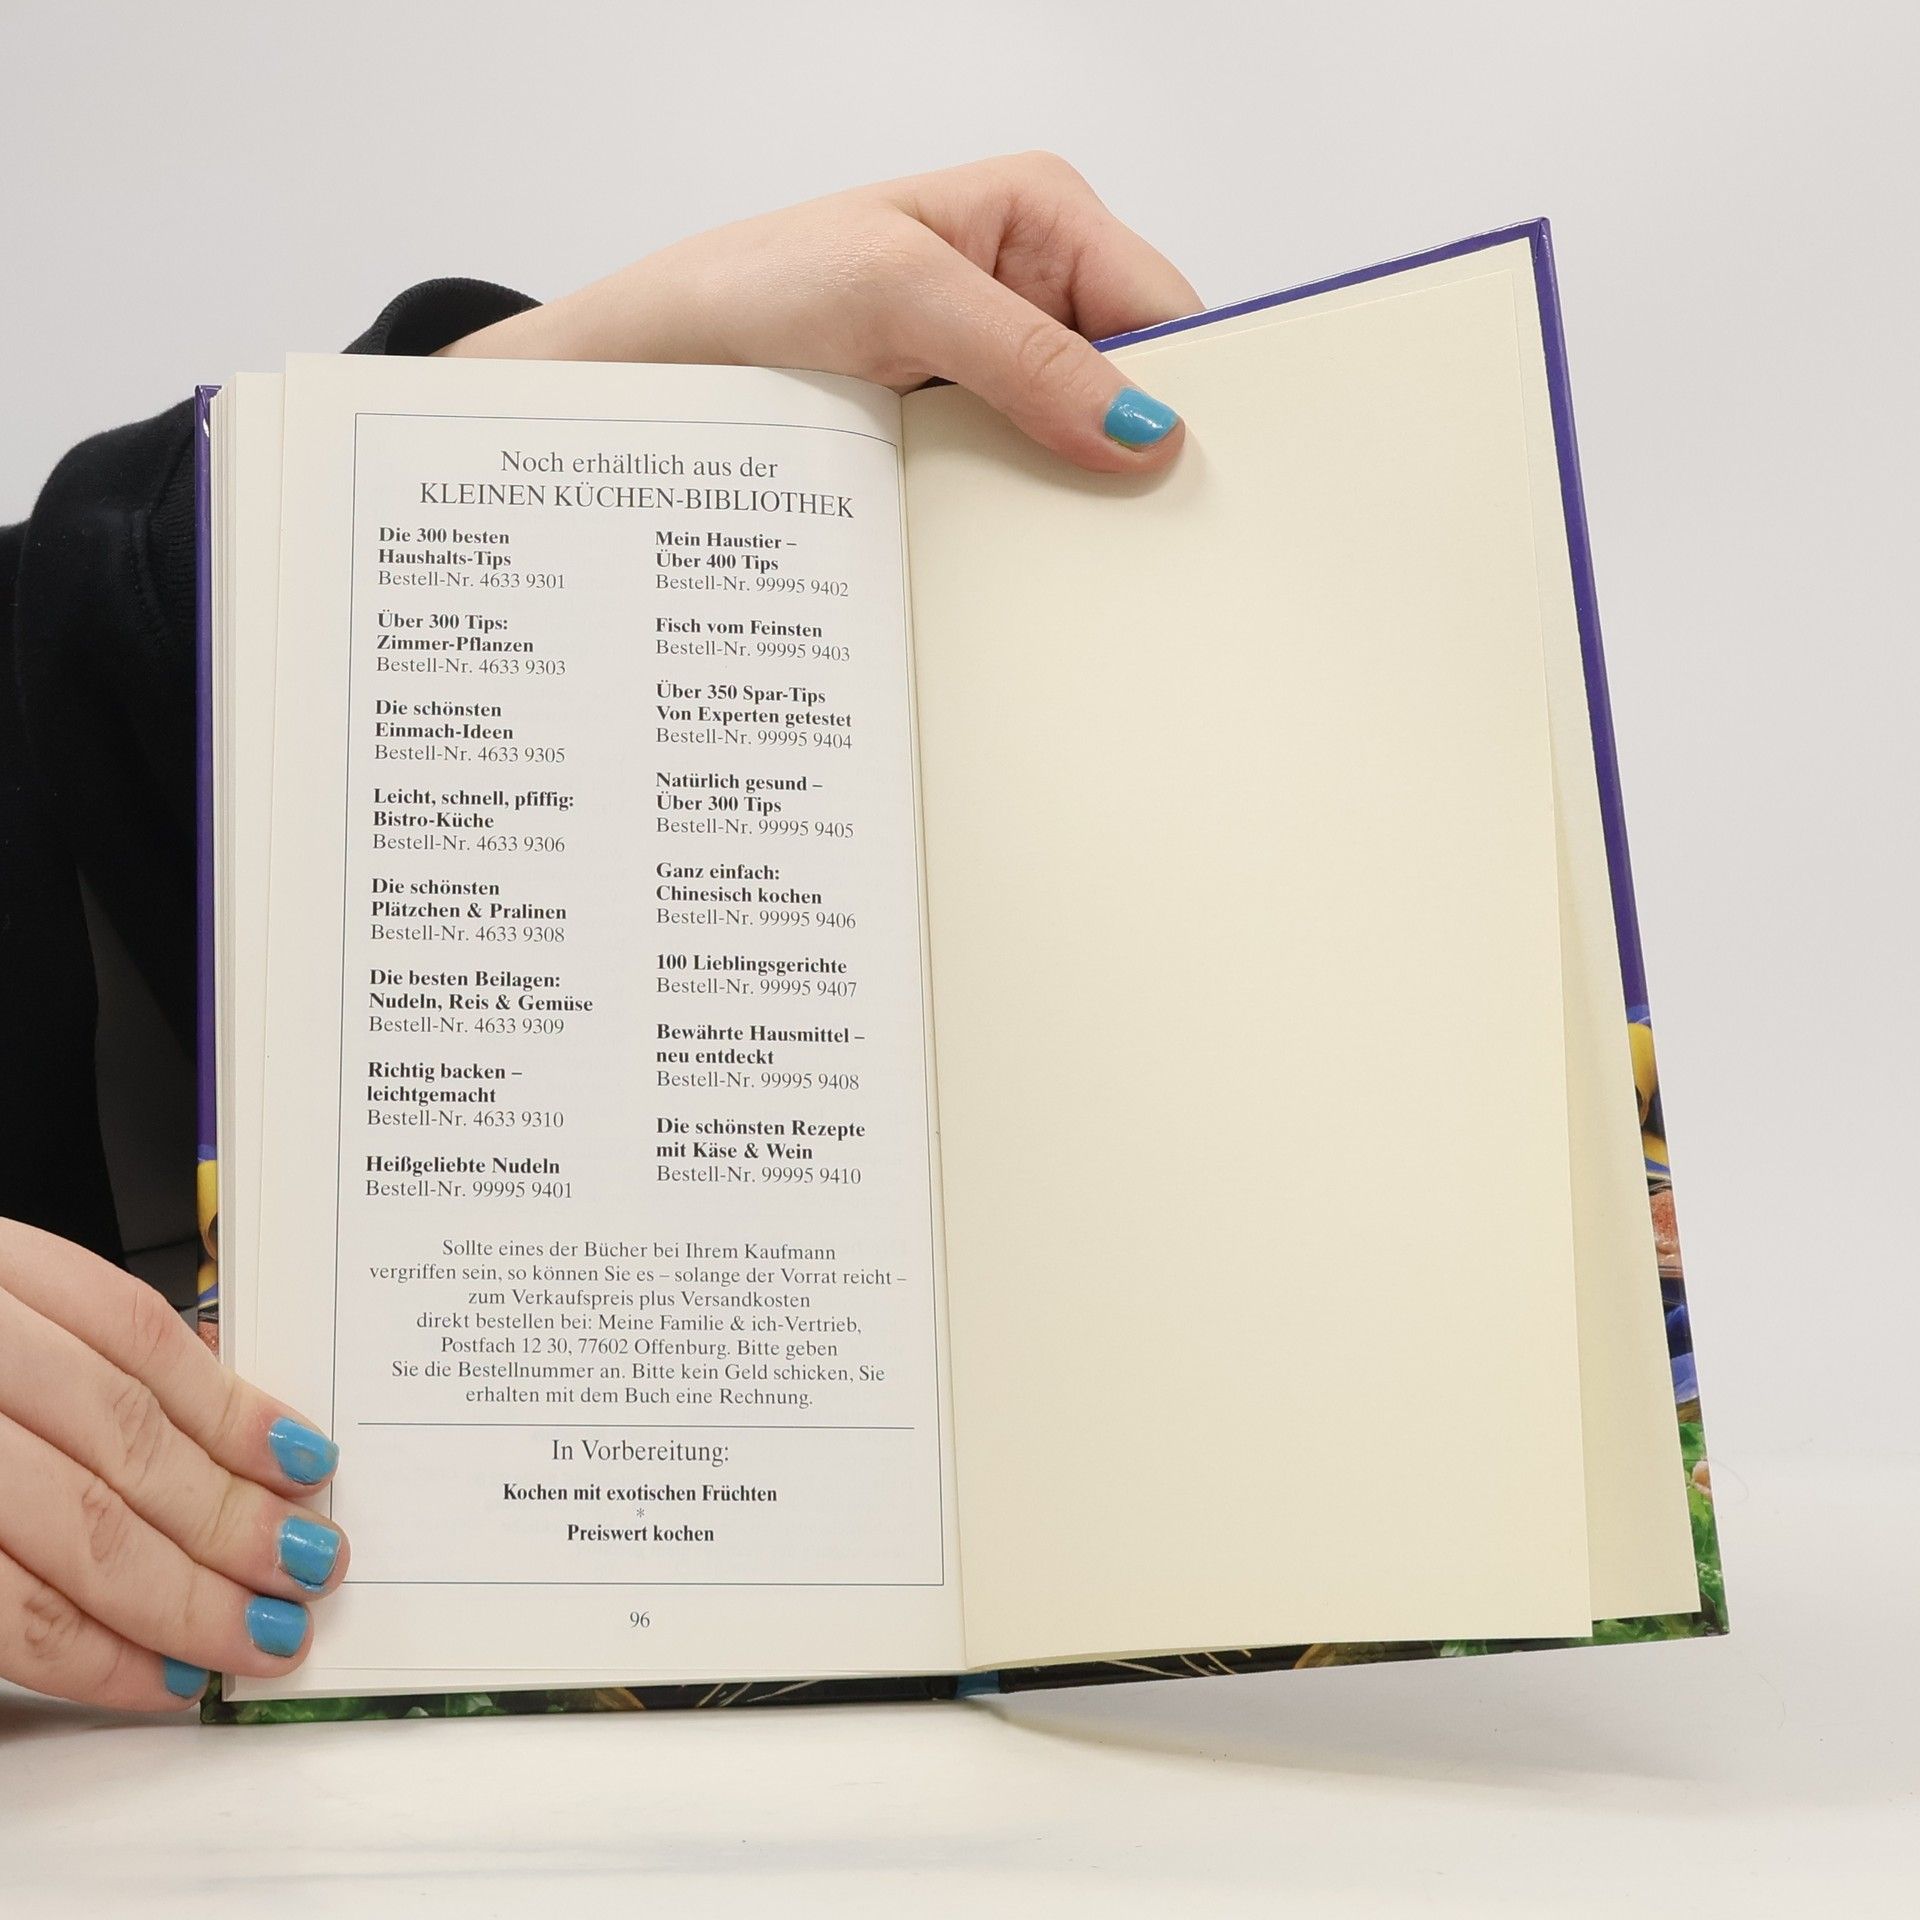 Noch erhältlich aus der
KLEINEN KÜCHEN-BIBLIOTHEK
Die 300 besten
Haushalts-Tips
Bestell-Nr. 4633 9301
Über 300 Tips:
Zimmer-Pflanzen
Bestell-Nr. 4633 9303
Die schönsten
Einmach-Ideen
Bestell-Nr. 4633 9305
Leicht, schnell, pfiffig:
Bistro-Küche
Bestell-Nr. 4633 9306
Die schönsten
Plätzchen & Pralinen
Bestell-Nr. 4633 9308
Die besten Beilagen:
Nudeln, Reis & Gemüse
Bestell-Nr. 4633 9309
Richtig backen –
leichtgemacht
Bestell-Nr. 4633 9310
Heißgeliebte Nudeln
Bestell-Nr. 99995 9401
Mein Haustier –
Über 400 Tips
Bestell-Nr. 99995 9402
Fisch vom Feinsten
Bestell-Nr. 99995 9403
Über 350 Spar-Tips
Von Experten getestet
Bestell-Nr. 99995 9404
Natürlich gesund –
Über 300 Tips
Bestell-Nr. 99995 9405
Ganz einfach:
Chinesisch kochen
Bestell-Nr. 99995 9406
100 Lieblingsgerichte
Bestell-Nr. 99995 9407
Bewährte Hausmittel –
neu entdeckt
Bestell-Nr. 99995 9408
Die schönsten Rezepte
mit Käse & Wein
Bestell-Nr. 99995 9410
Sollte eines der Bücher bei Ihrem Kaufmann
vergriffen sein, so können Sie es – solange der Vorrat reicht –
zum Verkaufspreis plus Versandkosten
direkt bestellen bei: Meine Familie & ich-Vertrieb,
Postfach 12 30, 77602 Offenburg. Bitte geben
Sie die Bestellnummer an. Bitte kein Geld schicken, Sie
erhalten mit dem Buch eine Rechnung.
In Vorbereitung:
Kochen mit exotischen Früchten
*
Preiswert kochen
96